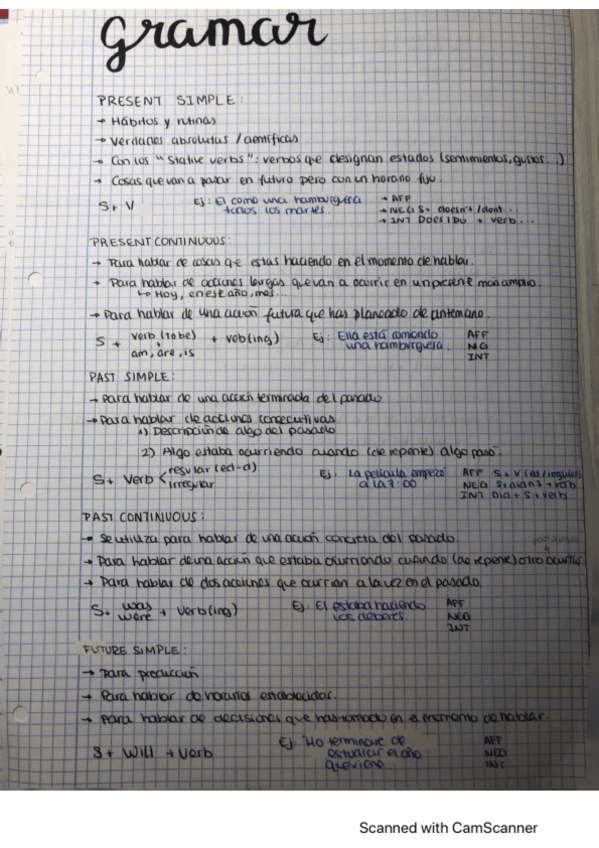 gramar
PRESENT SIMPLE:
→ Hábitos y rutinas
→ Verdades absolutas / científicas
→ Con los "Stative verbs": verbos que designan estados (sentimientos, gustos...)
→ Cosas que van a pasar en futuro pero con un horario fijo.
S + V Ej: El come una hamburguesa todos los martes. → AFF
→ NEG S + doesn't / dont ..
→ INT DOES / DO + verb ...
PRESENT CONTINUOUS:
→ Para hablar de cosas que estas haciendo en el momento de hablar.
→ Para hablar de acciones largas que van a ocurrir en un presente mas amplio.
↳ Hoy, en este año, mes...
→ Para hablar de una accion futura que has planeado de antemano.
S + verb (to be) + veb(ing) Ej: Ella está comiendo AFF
am, are, is una hamburguesa. NG
INT
PAST SIMPLE:
→ Para hablar de una acción terminada del pasado
→ Para hablar de acciones consecutivas
1) Descripcion de algo del pasado
2) Algo estaba ocurriendo cuando (de repente) algo pasó.
S + Verb regular (ed-d) Ej: La película empezó AFF S + V (ed / irregular)
irregular a la 7:00 NEG S + didn't + verb
INT Did + S + verb
PAST CONTINUOUS:
→ Se utiliza para hablar de una acción concreta del pasado.
→ Para hablar de una acción que estaba ocurriendo cuando (de repente) otro ocurrió
→ Para hablar de dos acciones que ocurrian a la vez en el pasado.
S + was + Verb (ing) Ej: El estaba haciendo AFF
were los deberes. NEG
INT
FUTURE SIMPLE:
→ Para predicción
→ Para hablar de horarios establecidos.
→ Para hablar de decisiones que has tomado en el momento de hablar.
S + Will + Verb Ej: Yo terminare de AFF
estudiar el año NEG
que viene INT
Scanned with CamScanner